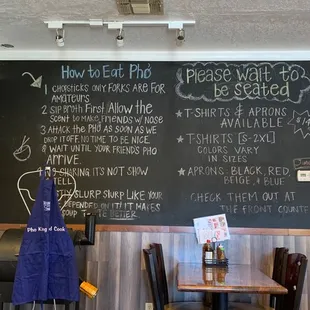 How to Eat Phở
1 Chopsticks only. Forks are for
Amateurs.
2 Sip Broth First! Allow the
Scent to make Friends w/ nose
3 Attack the Phở as soon as we
drop it off. No time to be nice.
4 Wait until your friends phở
arrive.
sharing. It's not show
tell
Slurp Slurp like your
depended on it. It makes
taste better.
Please wait to
be seated
* T-shirts & Aprons
available
* T-shirts [S-2XL]
Colors vary
in sizes
* Aprons: Black, Red,
Beige, & Blue
Check them out @
the front counte
Pho King